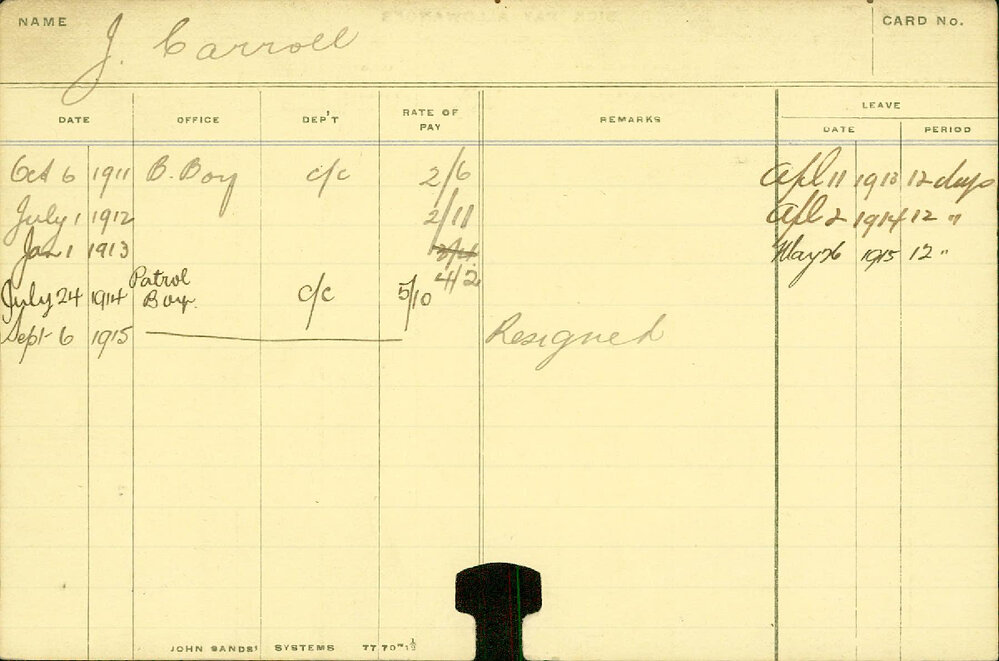 NAME J. Carroll CARD No.
DATE OFFICE DEP'T RATE OF PAY REMARKS LEAVE
DATE PERIOD
Oct 6 1911 B. Boy c/c 2/6 Apl 11 1913 12 days
July 1 1912 2/11 Apl 2 1914 12 "
Jan 1 1913 May 26 1915 12 "
4/2
July 24 1914 Patrol Boy. c/c 5/10
Sept 6 1915 Resigned
JOHN SANDS' SYSTEMS